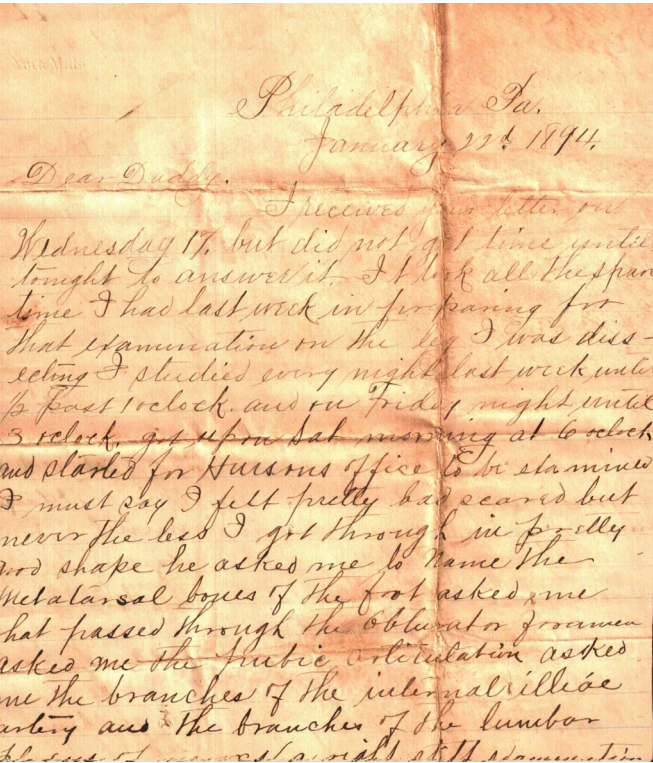 Philadelphia Pa.
January 22d 1894.
Dear Daddy.
I received your letter on
Wednesday 17, but did not get time until
tonight to answer it. It took all the spare
time I had last week in preparing for
that examination on the leg I was diss-
ecting I studied every night last week until
½ past 1 oclock. and on Friday night until
3 oclock, got up on Sat morning at 6 oclock
and started for office to be examined
I must say I felt pretty bad scared but
never the less I got through in pretty
good shape he asked me to Name the
Metatarsal bones of the foot asked me
what passed through the Obturator foramen
asked me the pubic articulation asked
me the branches of the internal illiac
artery and the branches of the lumbar
of